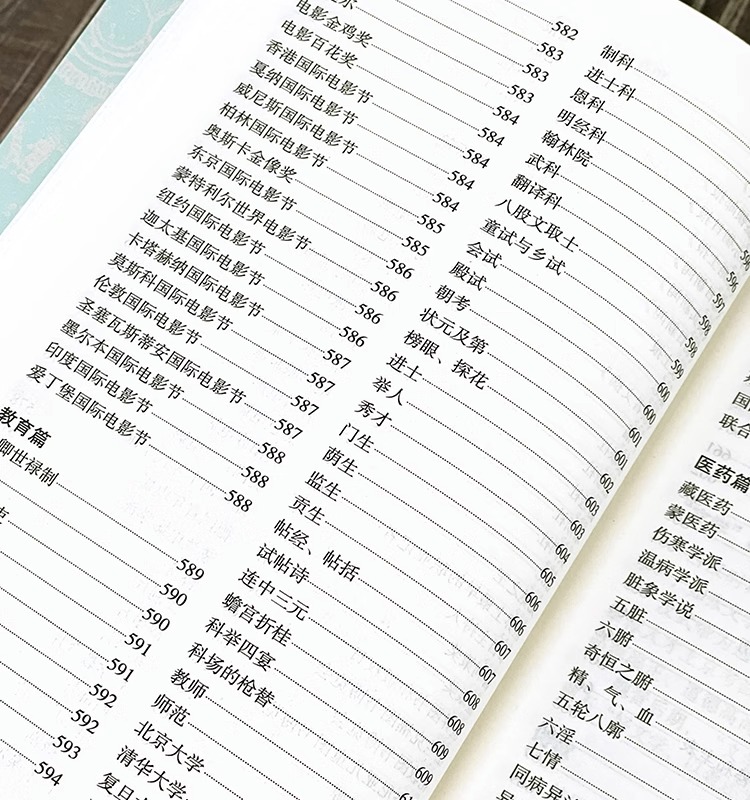 电影金鸡奖 583
电影百花奖 583
香港国际电影节 583
戛纳国际电影节 584
威尼斯国际电影节 584
柏林国际电影节 584
奥斯卡金像奖 584
东京国际电影节 585
蒙特利尔世界电影节 585
纽约国际电影节 586
迦太基国际电影节 586
卡塔赫纳国际电影节 586
莫斯科国际电影节 587
伦敦国际电影节 587
圣塞瓦斯蒂安国际电影节 587
墨尔本国际电影节 588
印度国际电影节 588
爱丁堡国际电影节 588
教育篇
卿世禄制 589
590
590
591
591
592
592
593
594
制科
进士科
恩科
明经科
翰林院
武科
翻译科
八股文取士
童试与乡试
会试
殿试
朝考
状元及第
榜眼、探花
进士
举人
秀才
门生
荫生
监生
贡生
帖经、帖括
试帖诗
连中三元
蟾宫折桂
科举四宴
科场的枪替
教师
师范
北京大学
清华大学
复旦
596
597
598
598
599
600
600
601
601
602
603
603
604
605
606
606
607
607
608
608
609
609
国
联合
医药篇
藏医药
蒙医药
伤寒学派
温病学派
脏象学说
五脏
六腑
奇恒之腑
精、气、血
五轮八廓
六淫
七情
同病异